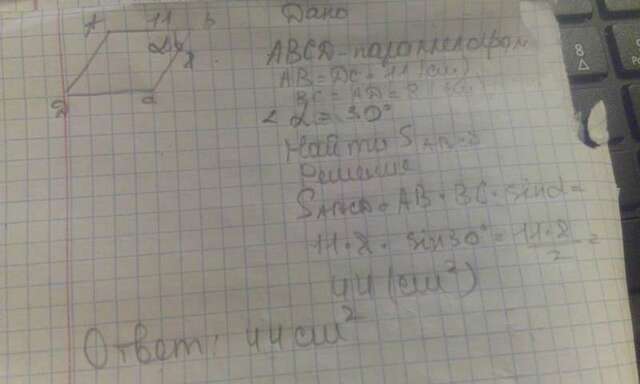 A 11 B
α
8
D C
Дано
ABCD - параллелограм
AB = DC = 11 (см)
BC = AD = 8 (см)
∠ α = 30°
Найти S
Решение
S ABCD = AB · BC · sin α =
11 · 8 · sin 30° = 11 · 8 / 2 =
44 (см²)
Ответ: 44 см²